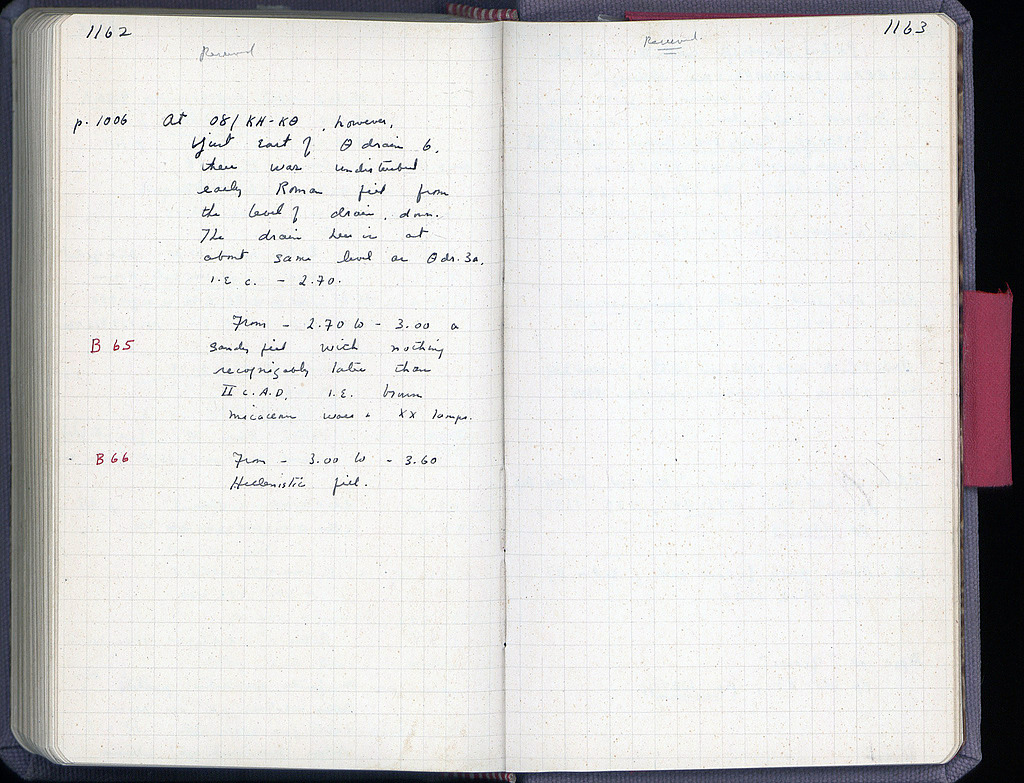 1162
Reserved
p. 1006 At 08/ KH-KΘ, however,
just East of Θ drain 6,
there was undisturbed
early Roman fill from
the level of drain, down.
The drain here is at
about same level as Θ dr. 3a,
I.E. c. - 2.70.
From - 2.70 to - 3.00 a
B 65 sandy fill with nothing
recognizably later than
II c. A.D. I.E. brown
micaceous ware + XX lamps.
B 66 From - 3.00 to - 3.60
Hellenistic fill.
1163
Reserved.